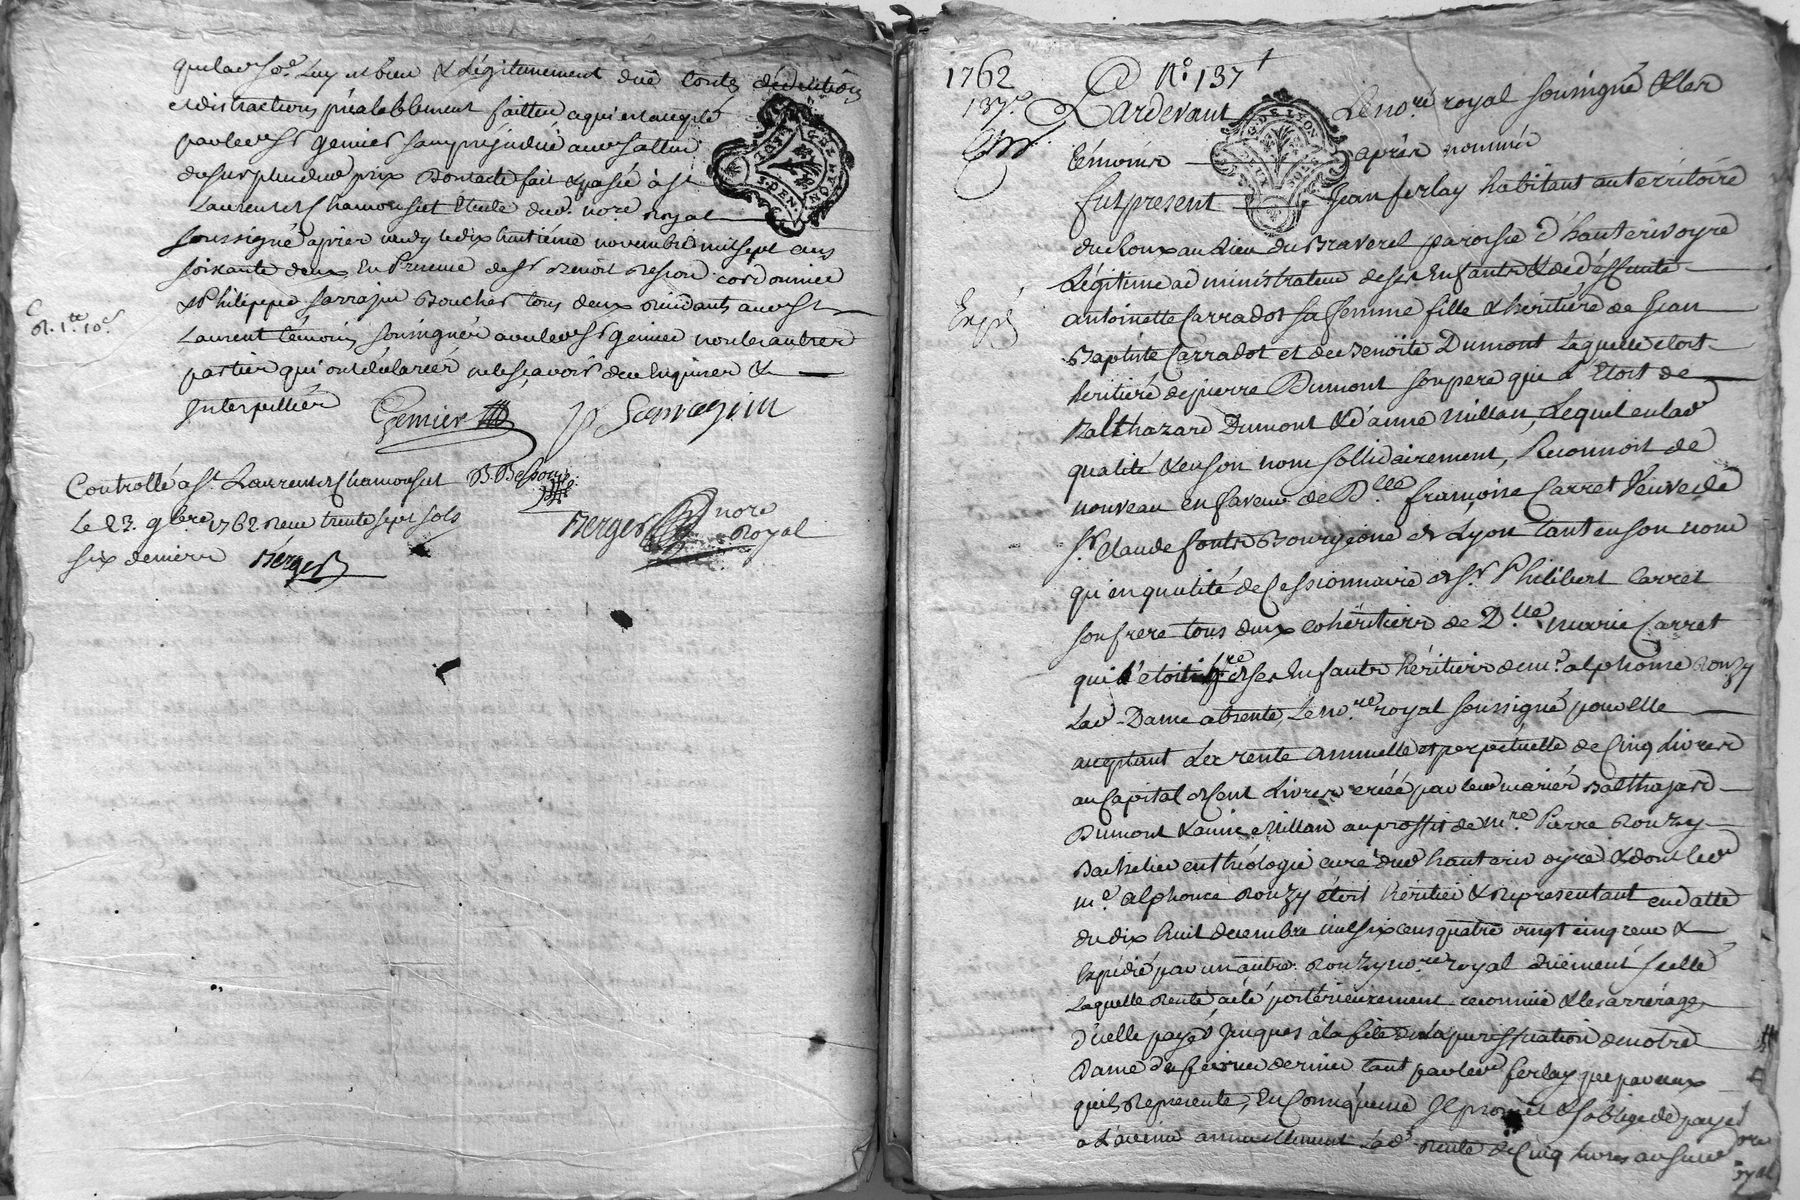 quelad. so.e Luy est bien & Légitimement due toutes déductions
et distractions préalablement faittes acqui et accepté
par led. sr Genier sans préjudice au sr
du surplus dud. prix Dont acte fait & passé à st
Laurent de Chamousset Etude dud. nore Royal
soussigné après midy le dix huitième novembre mil sept cens
soixante deux En Présence de sr Benoit Besson cordonnier
& Philippe Sarrasin Boucher tous deux résidants aud. st
Laurent témoins soussignés avec led. sr Genier non les autres
parties qui ont déclaré ne le sçavoir de ce Enquises &
Interpellées
R. 1.tt 10.s
Genier
P Sarrazin
B. Besson
Berger nore Royal
Controllé à st. Laurent de Chamousset
Le 23. 9bre 1762 Receu trente sept sols
six deniers Berger
1762
137.e
N.o 137
Pardevant Le no.re royal soussigné & les
témoins après nommés
G. DE LYON
DEUX SOLS
Expé
fut present Jean ferlay habitant au territoire
du Roux au Lieu du Braverel paroisse d'hauterivoyre
Légitime administrateur de ses Enfants & de déffunte
antoinette Carradot sa femme fille & héritière de Jean
Baptiste Carradot et de Benoîte Dumont Laquelle etoit
heritière de pierre Dumont son pere qui l'Etoit de
Balthazard Dumont & d'anne millan, Lequel en lad.
qualité & en son nom sollidairement, Reconnoit de
nouveau en faveur de D.lle françoise Carret Veuve de
Sr. Claude Bourgeois de Lyon tant en son nom
qu'en qualité de Cessionnaire de Sr. Philibert Carret
son frere tous deux cohéritiers de D.lle marie Carret
qui l'etoit de ses Enfants héritiers de m.e alphonse Ronzy
Lad. Dame absente, Le no.re royal soussigné pour elle
acceptant La rente annuelle et perpétuelle de Cinq Livres
au Capital de Cent Livres créée par les mariés Balthazard
Dumont & anne millan au proffit de m.re Pierre Ronzy
Bachelier en théologie curé dud. hauterivoyre & dont led.
m.e alphonse Ronzy étoit héritier & Représentant en datte
du dix huit decembre mil six cens quatre vingt cinq receu &
Expédié par un autre Ronzy no.re royal düement scellé
Laquelle Rente a été postérieurement reconnüe & les arrérages
d'icelle payés jusques à la fête de la puriffication de notre
Dame de février dernier tant par led. ferlay que par ceux
qu'il Représente, En Conséquence Il promet & s'oblige de payer
a L'avenir annuellement Lad. Rente de Cinq livres